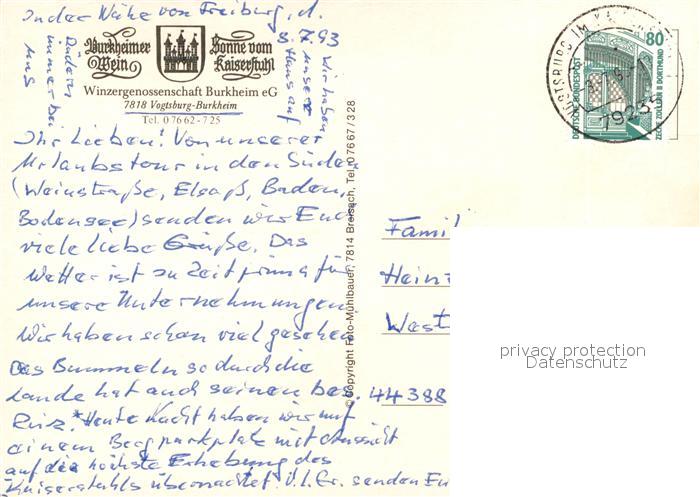 In der Nähe von Freiburg, d.
8.7.93
Burkheimer Wein
Sonne vom Kaiserstuhl
Winzergenossenschaft Burkheim eG
7818 Vogtsburg-Burkheim
Tel. 07662-725
Wir haben
unser
Haus auf
Rädern
immer bei
uns
Ihr Lieben! Von unserer
Urlaubstour in den Süden
(Weinstraße, Elsaß, Baden,
Bodensee) senden wir Euch
viele liebe Grüße. Das
Wetter ist zu Zeit prima für
unsere Unternehmungen.
Wir haben schon viel gesehen
Das Bummeln so durch die
Lande hat auch seinen bes.
Reiz. *Heute Nacht haben wir auf
einem Bergparkplatz mit Aussicht
auf die höchste Erhebung des
Kaiserstuhls übernachtet. V.l.Gr. senden Eu
© Copyright Foto-Mühlbauer, 7814 Breisach, Tel. 07667/328
80
DEUTSCHE BUNDESPOST
ZECHE ZOLLERN II DORTMUND
VOGTSBURG IM KAISERSTUHL
79235
Famil
Hein
West
44388
privacy protection
Datenschutz